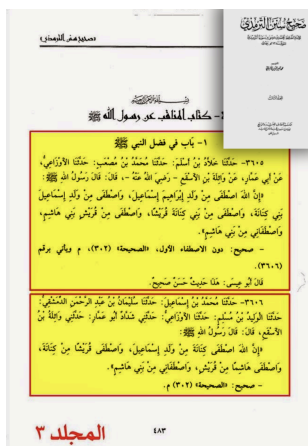 صحيح سنن الترمذي
صحيح سنن الترمذي
كتاب المناقب عن رسول الله ﷺ
١- بَاب في فضل النبي ﷺ
٣٦٠٥- حَدَّثَنَا خَلَّادُ بْنُ أَسْلَمَ: حَدَّثَنَا مُحَمَّدُ بْنُ مُصْعَبٍ: حَدَّثَنَا الأَوْزَاعِيُّ،
عَنْ أَبِي عَمَّارٍ، عَنْ وَاثِلَةَ بْنِ الأَسْقَعِ - رَضِيَ اللَّهُ عَنْهُ -، قَالَ: قَالَ رَسُولُ اللَّهِ ﷺ:
«إِنَّ اللَّهَ اصْطَفَى مِنْ وَلَدِ إِبْرَاهِيمَ إِسْمَاعِيلَ، وَاصْطَفَى مِنْ وَلَدِ إِسْمَاعِيلَ
بَنِي كِنَانَةَ، وَاصْطَفَى مِنْ بَنِي كِنَانَةَ قُرَيْشًا، وَاصْطَفَى مِنْ قُرَيْشٍ بَنِي هَاشِمٍ،
وَاصْطَفَانِي مِنْ بَنِي هَاشِمٍ».
- صحيح: دون الاصطفاء الأول، «الصحيحة» (٣٠٢)، م ويأتي برقم
(٣٦٠٦).
قَالَ أَبُو عِيسَى: هَذَا حَدِيثٌ حَسَنٌ صَحِيحٌ.
٣٦٠٦- حَدَّثَنَا مُحَمَّدُ بْنُ إِسْمَاعِيلَ: حَدَّثَنَا سُلَيْمَانُ بْنُ عَبْدِ الرَّحْمَنِ الدِّمَشْقِيُّ:
حَدَّثَنَا الْوَلِيدُ بْنُ مُسْلِمٍ: حَدَّثَنَا الأَوْزَاعِيُّ: حَدَّثَنِي شَدَّادٌ أَبُو عَمَّارٍ: حَدَّثَنِي وَاثِلَةُ بْنُ
الأَسْقَعِ، قَالَ: قَالَ رَسُولُ اللَّهِ ﷺ:
«إِنَّ اللَّهَ اصْطَفَى كِنَانَةَ مِنْ وَلَدِ إِسْمَاعِيلَ، وَاصْطَفَى قُرَيْشًا مِنْ كِنَانَةَ،
وَاصْطَفَى هَاشِمًا مِنْ قُرَيْشٍ، وَاصْطَفَانِي مِنْ بَنِي هَاشِمٍ».
- صحيح: «الصحيحة» (٣٠٢) م.
٤٨٣
المجلد ٣